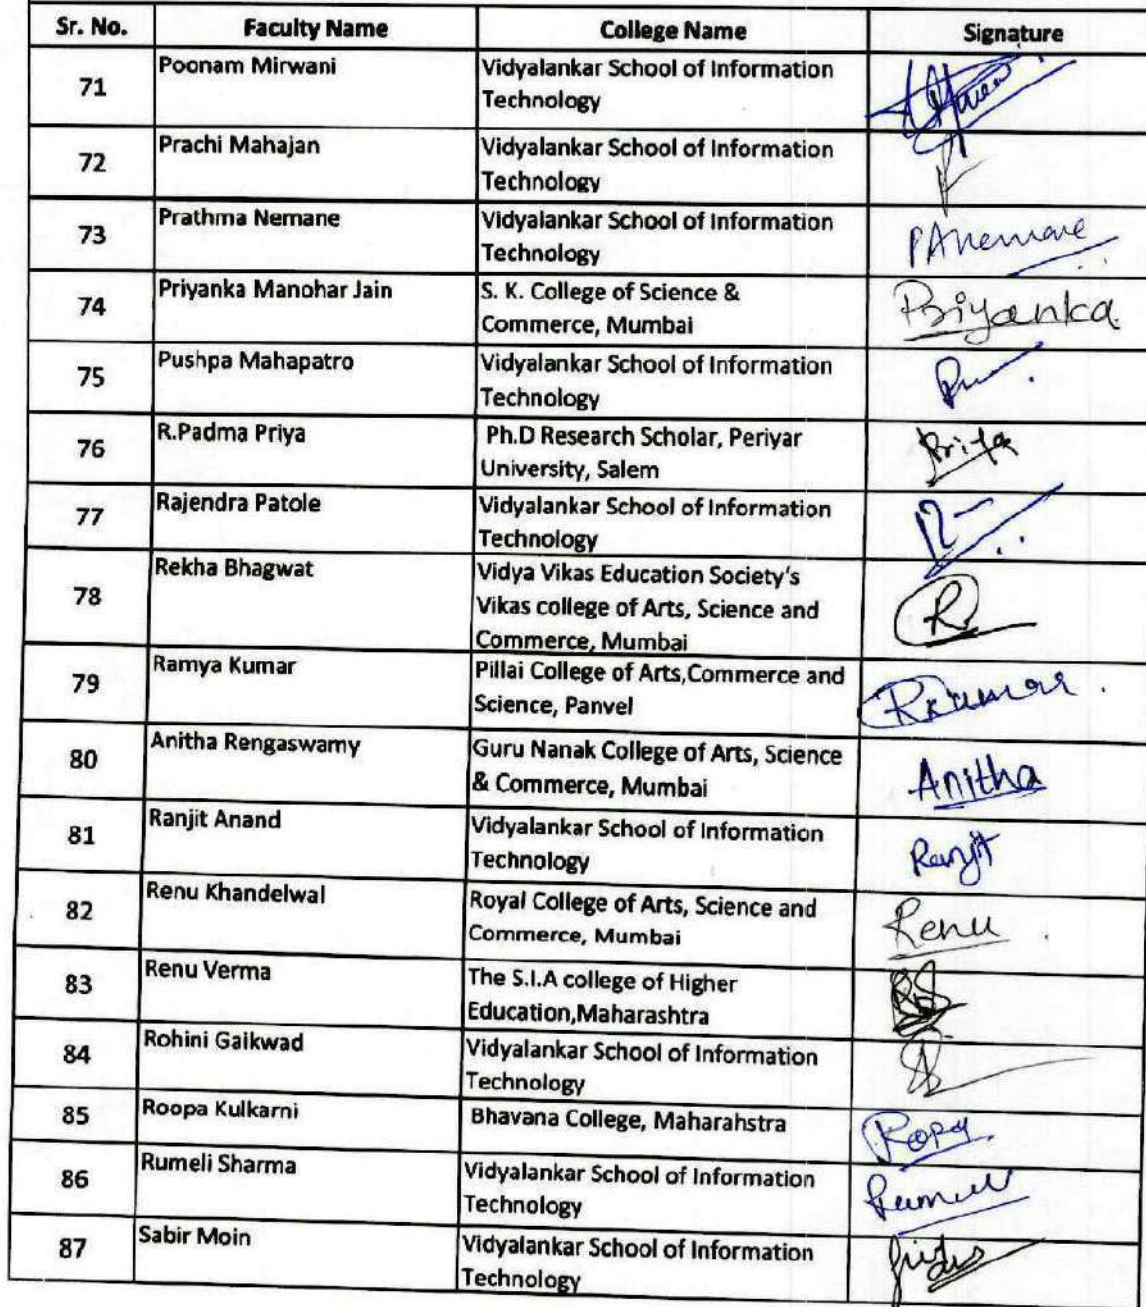 Sr. No. Faculty Name College Name Signature
71 Poonam Mirwani Vidyalankar School of Information
Technology
72 Prachi Mahajan Vidyalankar School of Information
Technology
73 Prathma Nemane Vidyalankar School of Information
Technology PANemane
74 Priyanka Manohar Jain S. K. College of Science &
Commerce, Mumbai Priyanka
75 Pushpa Mahapatro Vidyalankar School of Information
Technology
76 R.Padma Priya Ph.D Research Scholar, Periyar
University, Salem Priya
77 Rajendra Patole Vidyalankar School of Information
Technology
78 Rekha Bhagwat Vidya Vikas Education Society's
Vikas college of Arts, Science and R
Commerce, Mumbai
79 Ramya Kumar Pillai College of Arts,Commerce and
Science, Panvel RKumar
80 Anitha Rengaswamy Guru Nanak College of Arts, Science
& Commerce, Mumbai Anitha
81 Ranjit Anand Vidyalankar School of Information
Technology Ranjit
82 Renu Khandelwal Royal College of Arts, Science and
Commerce, Mumbai Renu
83 Renu Verma The S.I.A college of Higher
Education,Maharashtra
84 Rohini Gaikwad Vidyalankar School of Information
Technology
85 Roopa Kulkarni Bhavana College, Maharahstra
86 Rumeli Sharma Vidyalankar School of Information
Technology
87 Sabir Moin Vidyalankar School of Information
Technology